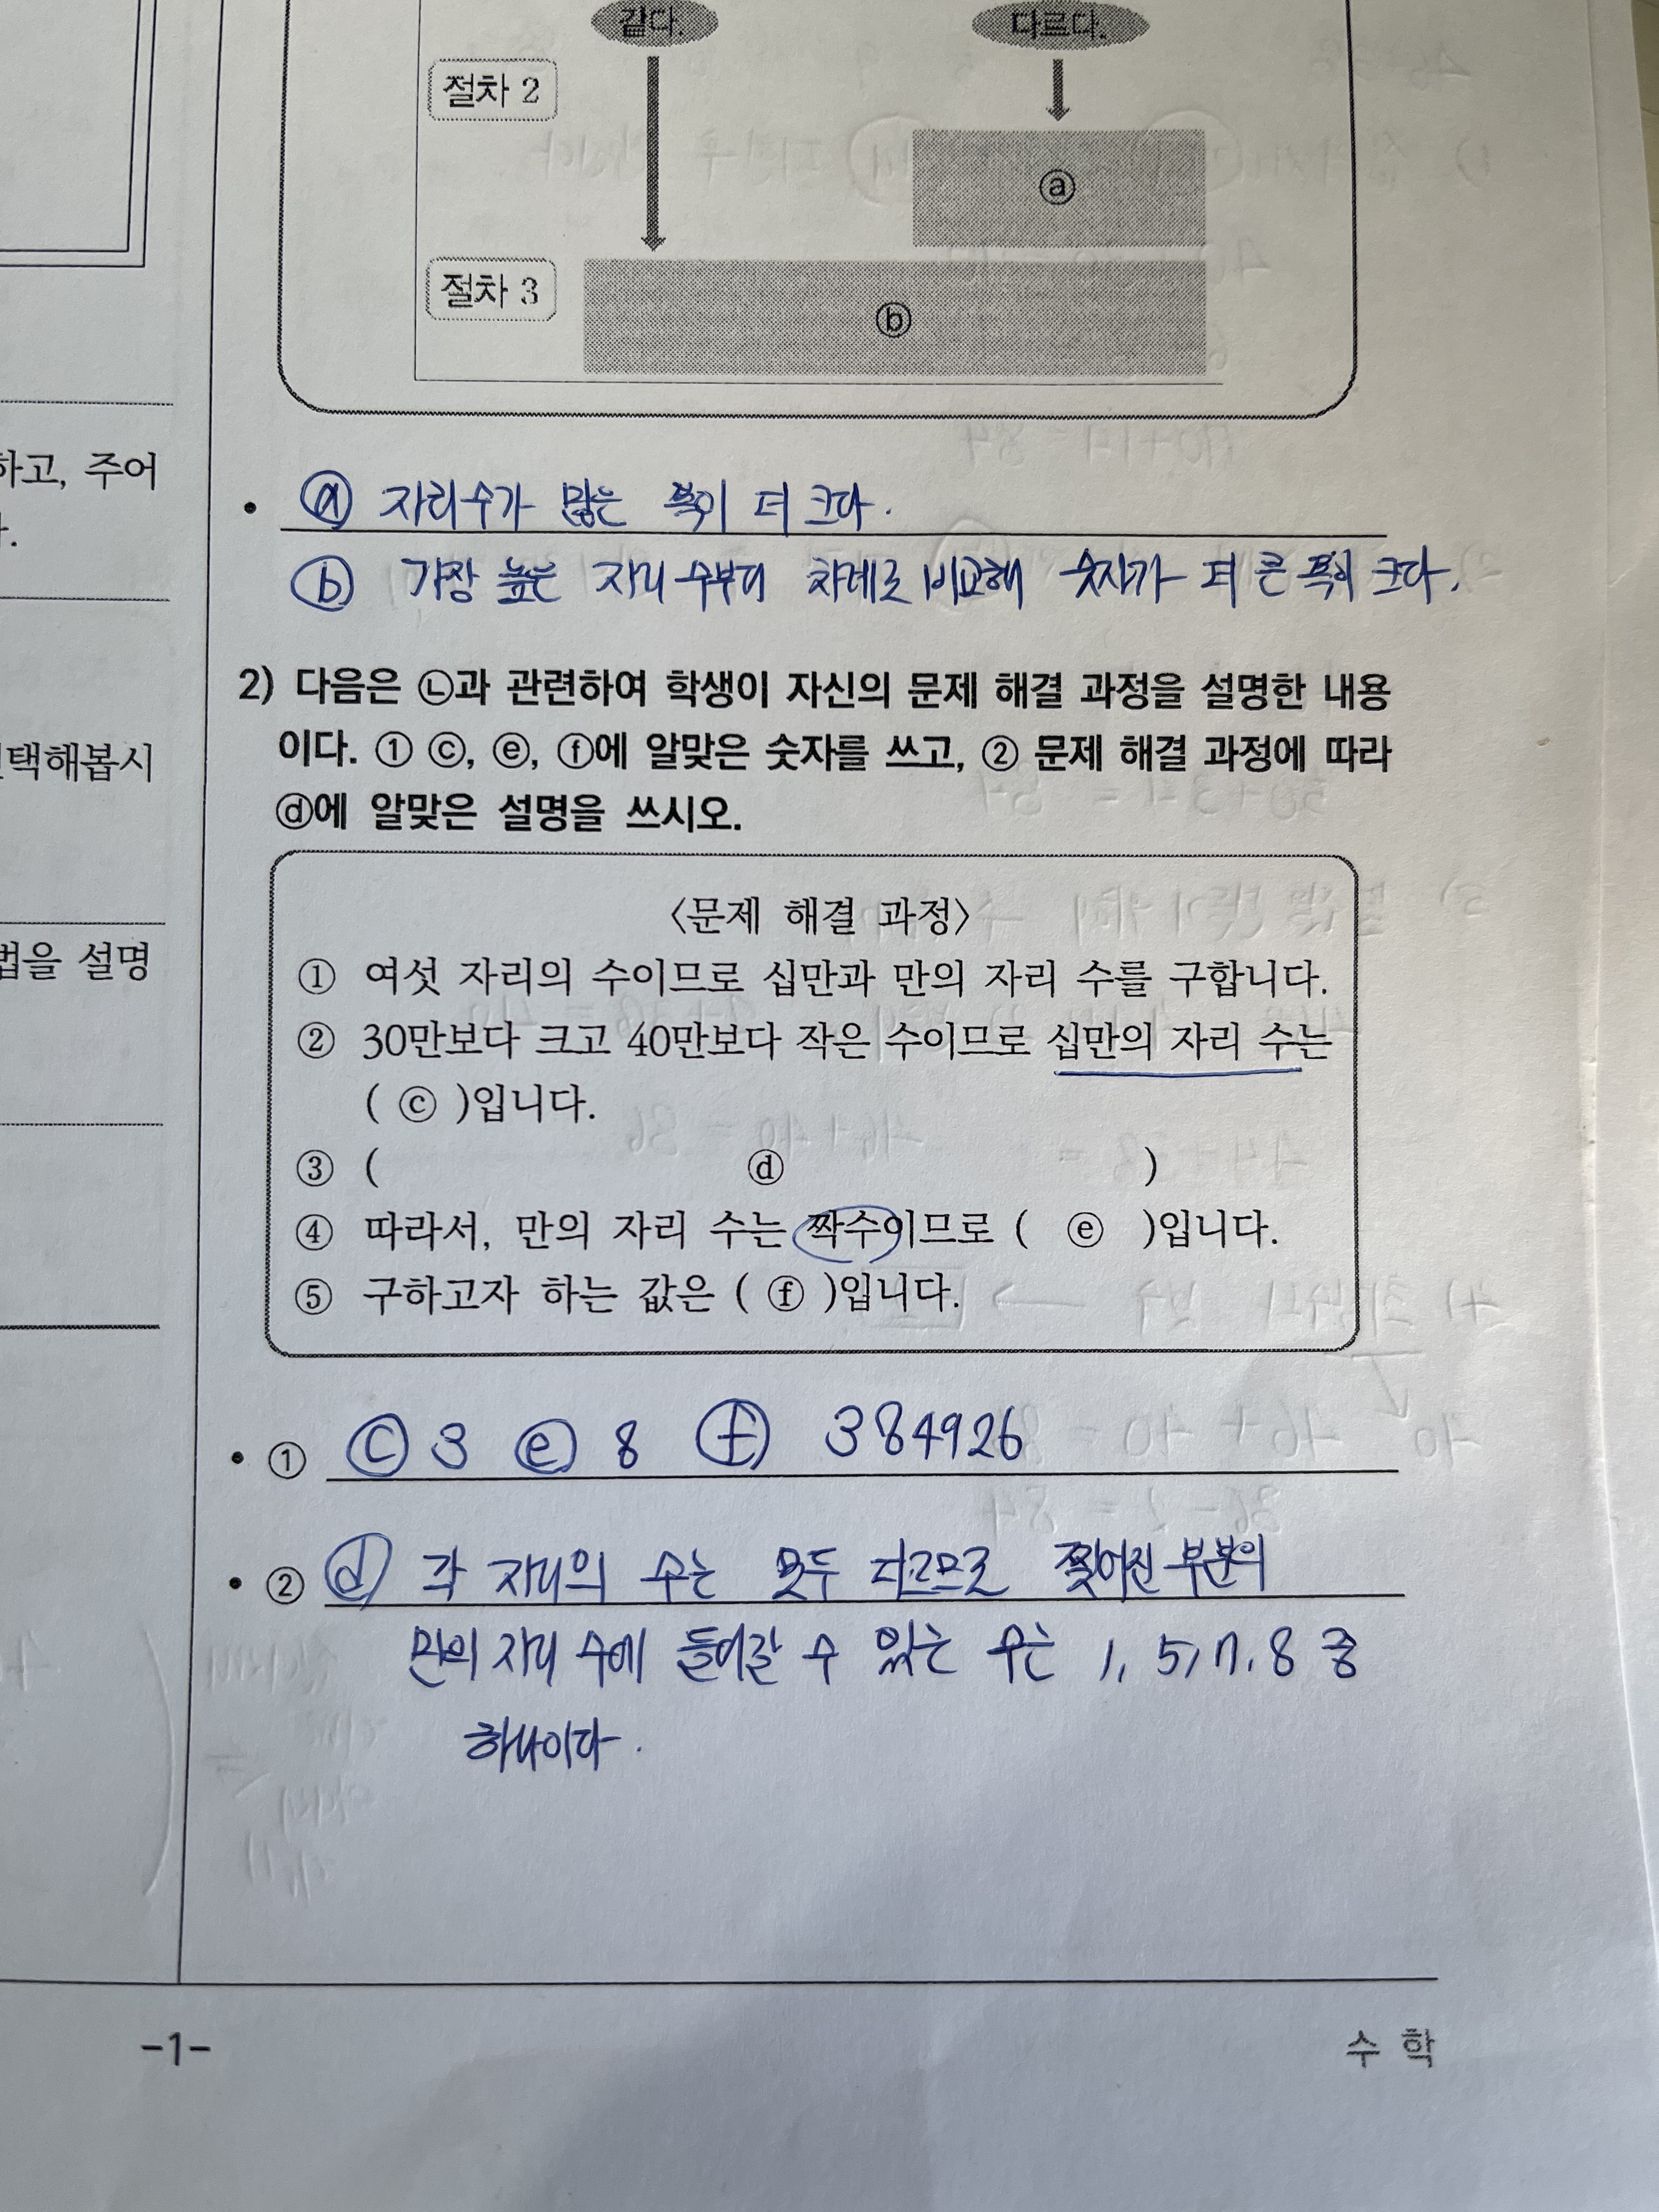 같다.
다르다.
절차 2
ⓐ
절차 3
ⓑ
하고, 주어
ⓐ 자리수가 많은 쪽이 더 크다.
ⓑ 가장 높은 자리 수부터 차례로 비교해 숫자가 더 큰 쪽이 크다.
2) 다음은 ㉡과 관련하여 학생이 자신의 문제 해결 과정을 설명한 내용
이다. ① ⓒ, ⓔ, ⓕ에 알맞은 숫자를 쓰고, ② 문제 해결 과정에 따라
ⓓ에 알맞은 설명을 쓰시오.
택해봅시
〈문제 해결 과정〉
법을 설명
① 여섯 자리의 수이므로 십만과 만의 자리 수를 구합니다.
② 30만보다 크고 40만보다 작은 수이므로 십만의 자리 수는
( ⓒ )입니다.
③ ( ⓓ )
④ 따라서, 만의 자리 수는 짝수이므로 ( ⓔ )입니다.
⑤ 구하고자 하는 값은 ( ⓕ )입니다.
• ① ⓒ 3 ⓔ 8 ⓕ 384926
• ② ⓓ 각 자리의 수는 모두 다르므로 찢어진 부분의
만의 자리 수에 들어갈 수 있는 수는 1, 5, 7, 8 중
하나이다.
-1-
수 학